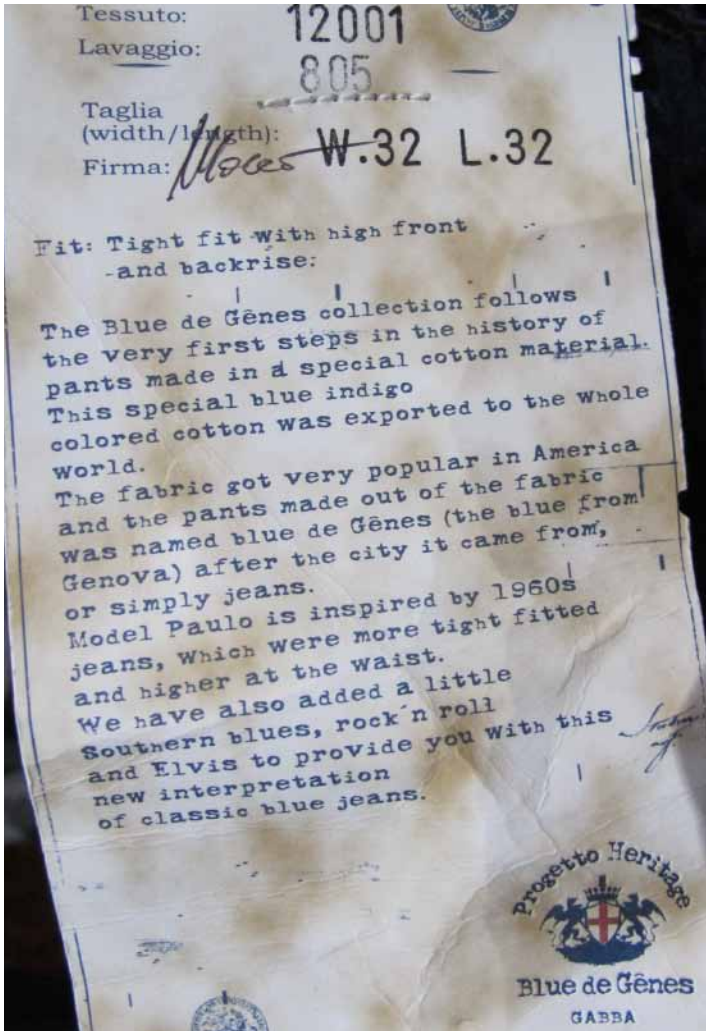 Tessuto: 12001
Lavaggio: 805
Taglia
(width/length): W.32 L.32
Firma:
Fit: Tight fit with high front
-and backrise:
The Blue de Gênes collection follows
the very first steps in the history of
pants made in a special cotton material.
This special blue indigo
colored cotton was exported to the whole
world.
The fabric got very popular in America
and the pants made out of the fabric
was named blue de Gênes (the blue from
Genova) after the city it came from,
or simply jeans.
Model Paulo is inspired by 1960s
jeans, which were more tight fitted
and higher at the waist.
We have also added a little
Southern blues, rock´n roll
and Elvis to provide you with this
new interpretation
of classic blue jeans.
Progetto Heritage
Blue de Gênes
GABBA